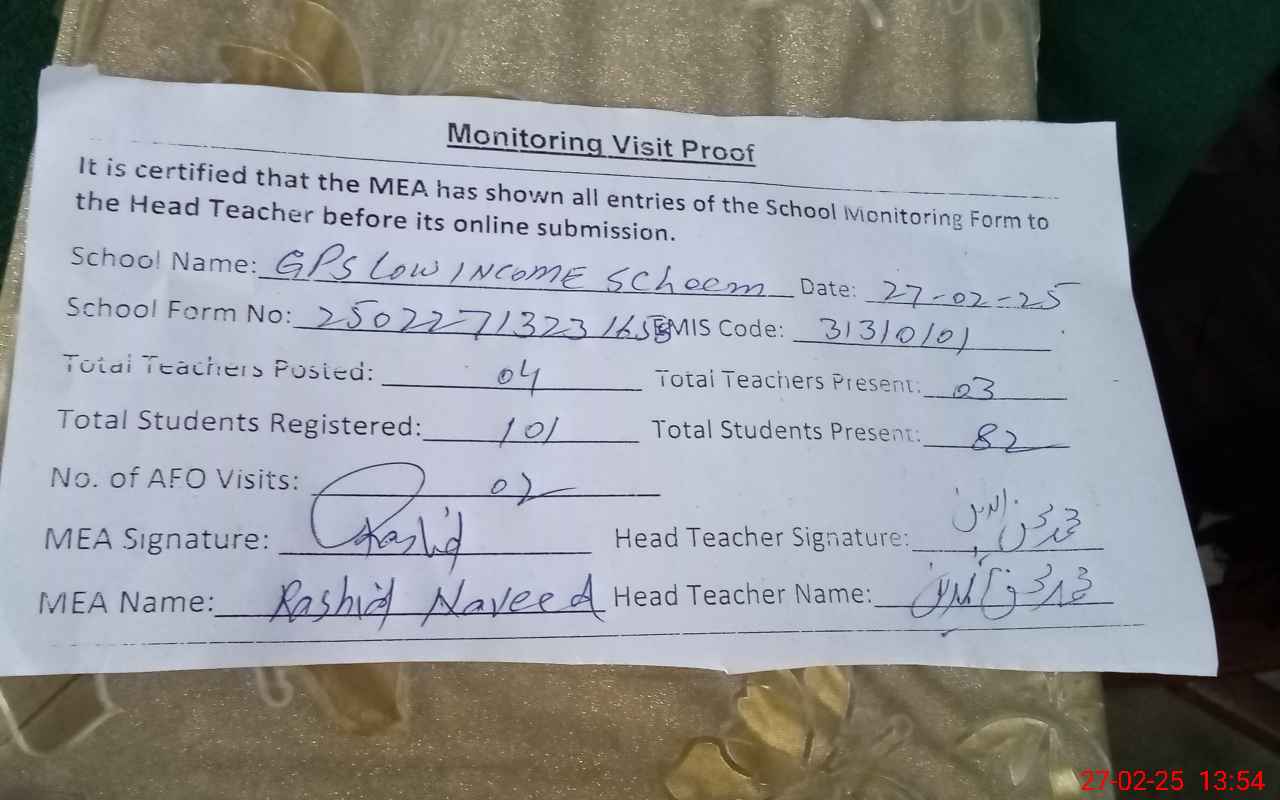 Monitoring Visit Proof
It is certified that the MEA has shown all entries of the School Monitoring Form to
the Head Teacher before its online submission.
School Name: GPS LOW INCOME SCheem Date: 27-02-25
School Form No: 2502271323165 EMIS Code: 31310101
Total Teachers Posted: 04 Total Teachers Present: 03
Total Students Registered: 101 Total Students Present: 82
No. of AFO Visits: 02
MEA Signature: Rashid Head Teacher Signature:
MEA Name: Rashid Naveed Head Teacher Name:
27-02-25 13:54